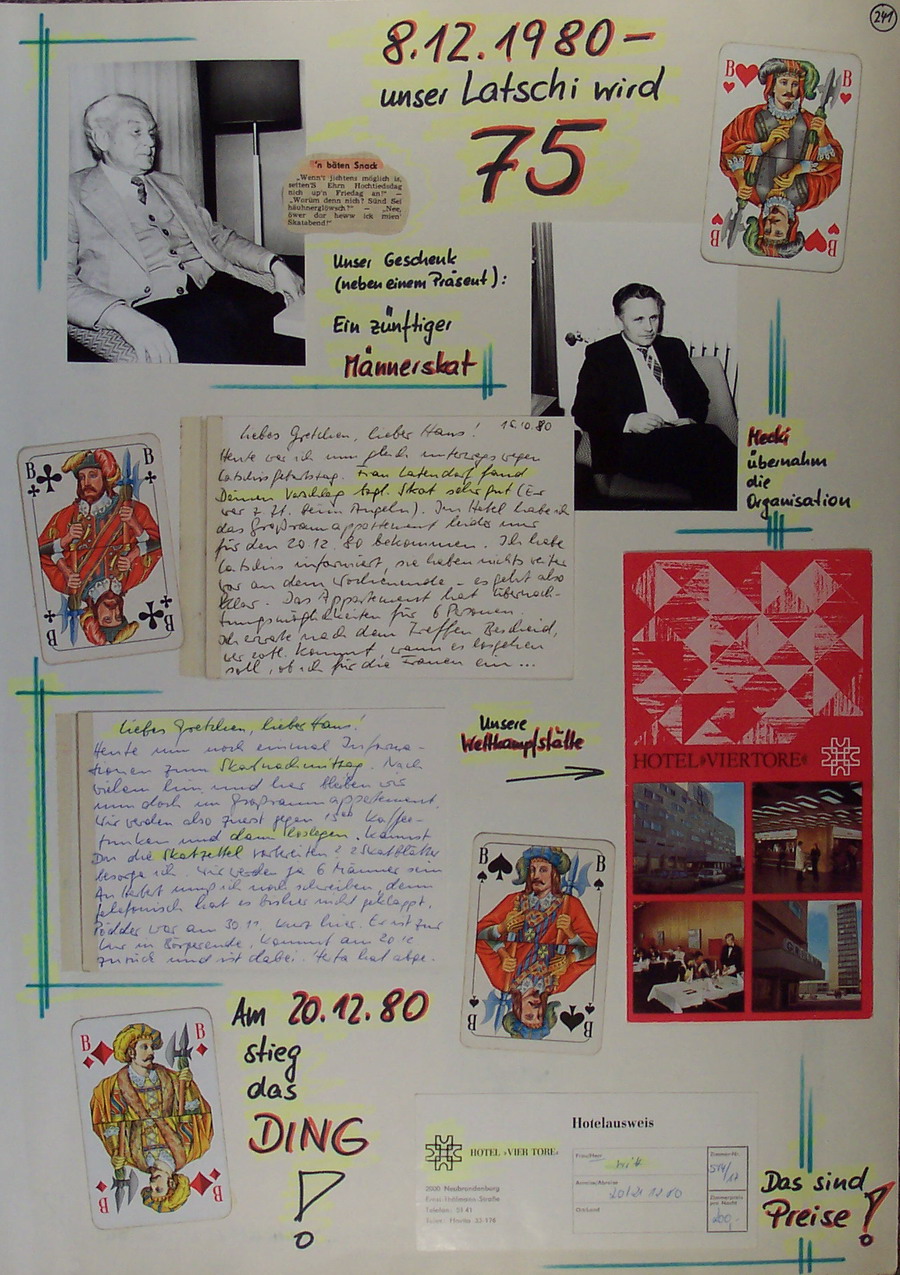 241
8.12.1980 –
unser Latschi wird
75
'n båten Snack
„Wenn't jichtens möglich is,
setten'S Ehrn Hochtiedsdag
nich up'n Friedag an!" —
„Worüm denn nich? Sünd Sei
häuhnerglöwsch?" — „Nee,
öwer dor heww ick mien'
Skatabend!"
Unser Geschenk
(neben einem Präsent):
Ein zünftiger
Männerskat
B B
B B
Mecki
übernahm
die
Organisation
Liebes Gretchen, lieber Hans! 15.10.80
Heute war ich nun gleich unterwegs wegen
Latschis Geburtstag. Frau Latendorf fand
Deinen Vorschlag bzgl. Skat sehr gut (Er
war z. Zt. beim Angeln). Im Hotel habe ich
das Großraumappartement leider nur
für den 20.12.80 bekommen. Ich habe
Latschis informiert, sie haben nichts weiter
vor an dem Wochenende, – es geht also
klar. Das Appartement hat Übernach-
tungsmöglichkeiten für 6 Personen.
nach dem Treffen Bescheid,
wer evtl. kommt, wann es losgehen
soll, ob ich für die Frauen ein ...
B B
B B
Liebes Gretchen, lieber Hans!
Heute nun noch einmal Informa-
tionen zum Skatnachmittag. Nach
vielem hin und her bleiben wir
nun doch im Großraumappartement.
Wir werden also zuerst gegen 15°° Kaffee-
trinken und dann loslegen. Kannst
Du die Skatzettel vorbereiten? 2 Skatblätter
besorge ich. Wir werden ja 6 Männer sein
An muß ich noch schreiben, denn
telefonisch hat es bisher nicht geklappt.
Pödder war am 30.11. kurz hier. Er ist zur
Kur in Börgerende, kommt am 20.12.
zurück und ist dabei. hat abge-
Unsere
Wettkampfstätte
HOTEL »VIERTORE«
B B
B B
Am 20.12.80
stieg
das
DING
!
B B
B B
HOTEL »VIER TORE«
2000 Neubrandenburg
Ernst-Thälmann-Straße
Telefon: 51 41
Hotelausweis
Frau/Herr
Anreise/Abreise
20/21 12 80
Ort/Land
Zimmer-Nr.
514/17
Zimmerpreis
pro Nacht
200,-
Das sind
Preise!